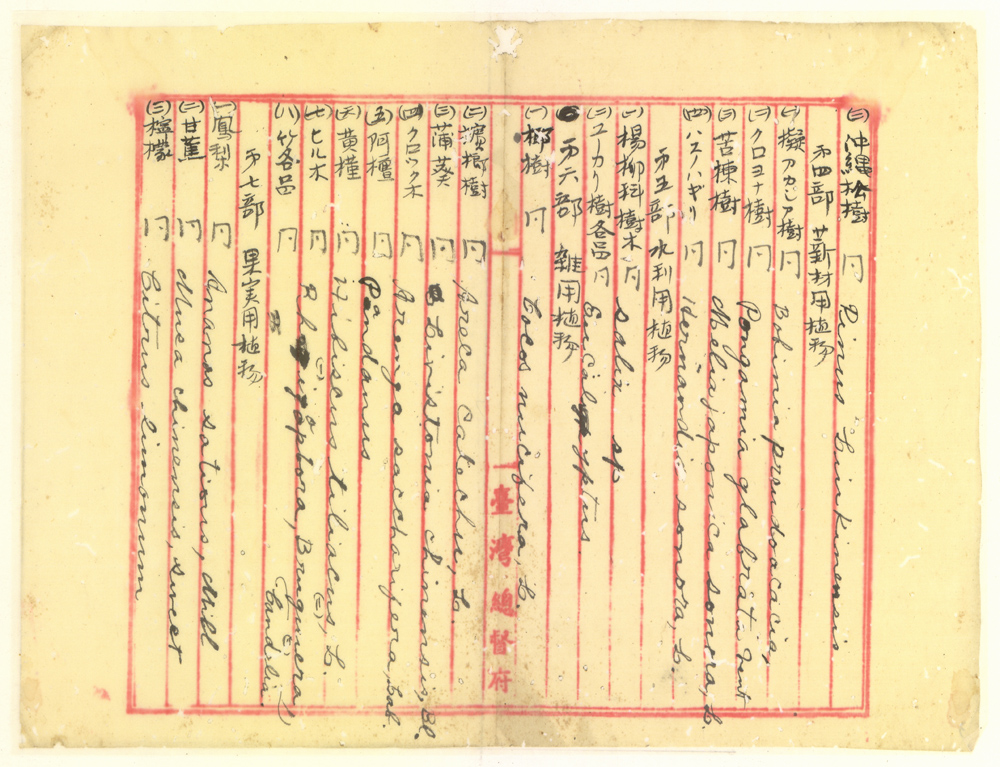 (三) 沖縄松樹 冂 Pinus Liukinensis.
第四部 薪材用植物
(一) 擬アカシア樹 冂 Robinia pseudoacacia,
(二) クロヨナ樹 冂 Pongamia glabrata Vent
(三) 苦楝樹 冂 Melia japonica sonora, L.
(四) ハスノハギリ 冂 Hernandia sonora, L.
第五部 水利用植物
(一) 楊柳科樹木 冂 Salix sp
(二) ユーカリ樹各品 冂 Eucalyptus.
第六部 雑用植物
(一) 椰樹 冂 Cocos nucifera, L.
臺灣總督府
(二) 檳榔樹 冂 Areca Catechu, L.
(三) 蒲葵 冂 Livistonia chinensis, Bl.
(四) クロツク木 冂 Arenga saccharifera, Lab.
(五) 阿檀 冂 Pandanus
(六) 黄槿 冂 Hibiscus tiliaceus, L.
(七) ヒルギ木 冂 Rhizophora, Bruguiera,
(八) 竹各品 冂
第七部 果実用植物
(一) 鳳梨 冂 Ananas sativus, Mill
(二) 甘蕉 冂 Musa chinensis, sweet
(三) 檸檬 冂 Citrus limonum